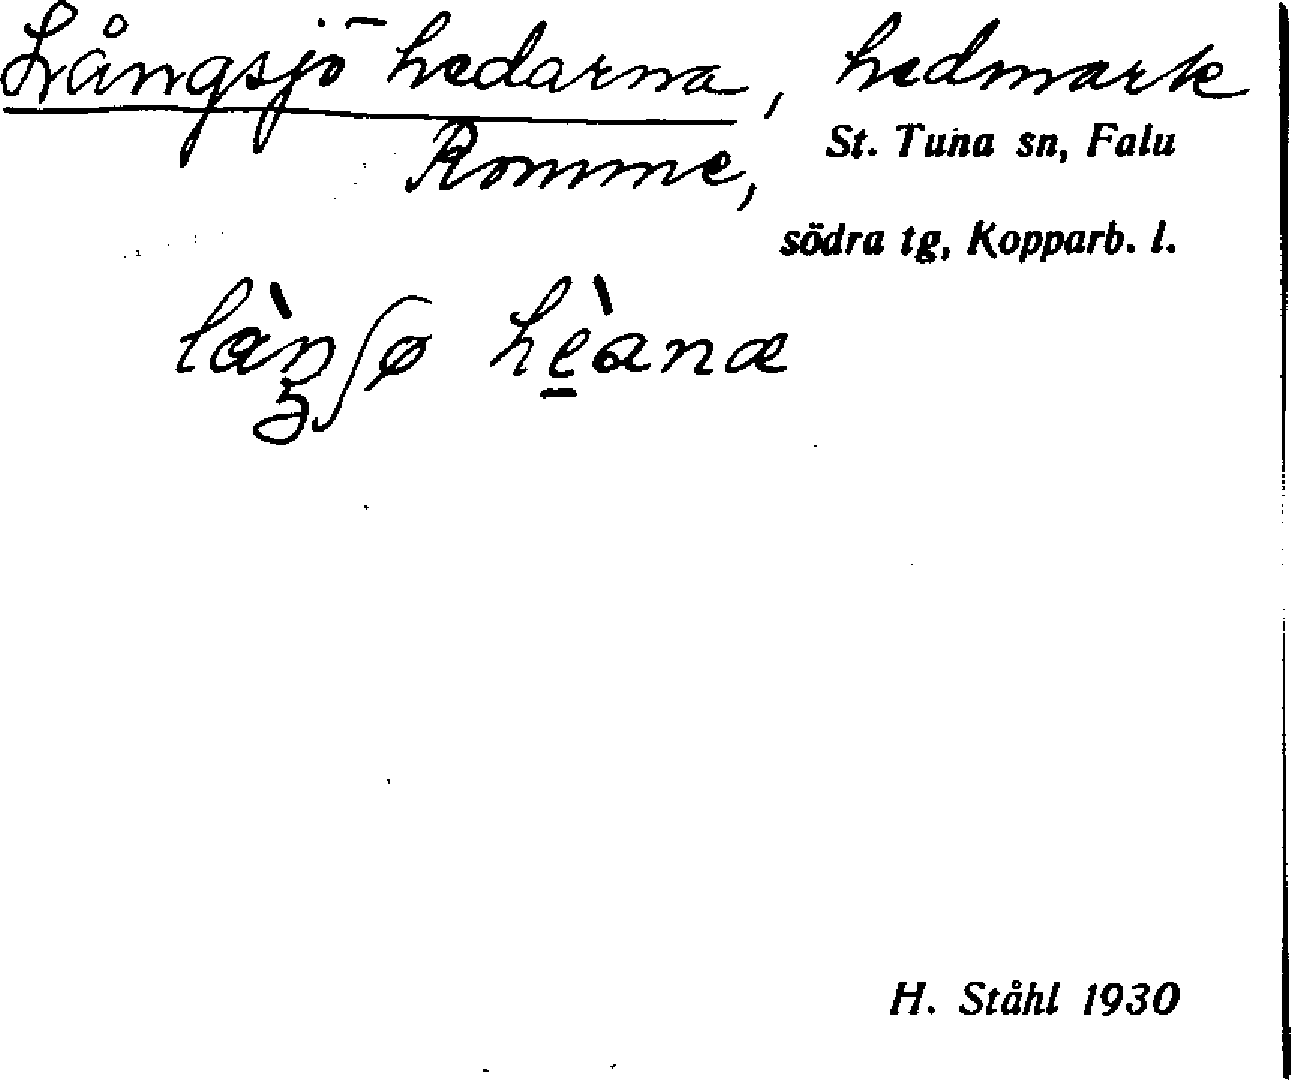 Långsjöhedarna, hedmark
Romme, St. Tuna sn, Falu
södra tg, Kopparb. l.
H. Ståhl 1930